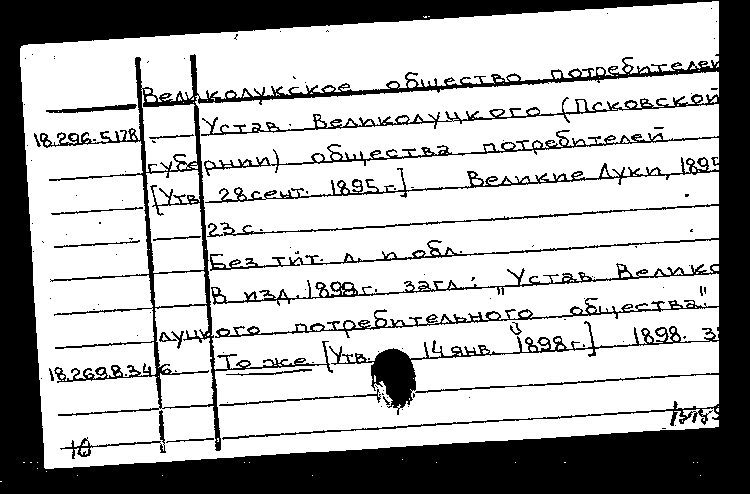 Великолукское общество потребителей
18.296.5.178 – Устав Великолуцкого (Псковской
губернии) общества потребителей
[Утв. 28 сент. 1895 г.]. Великие Луки, 1895
23 с.
Без тит. л. и обл.
В изд. 1898 г. загл.: "Устав Велико
луцкого потребительного общества".
18.269.8.34 б. То же [Утв. 14 янв. 1898 г.] 1898.
10